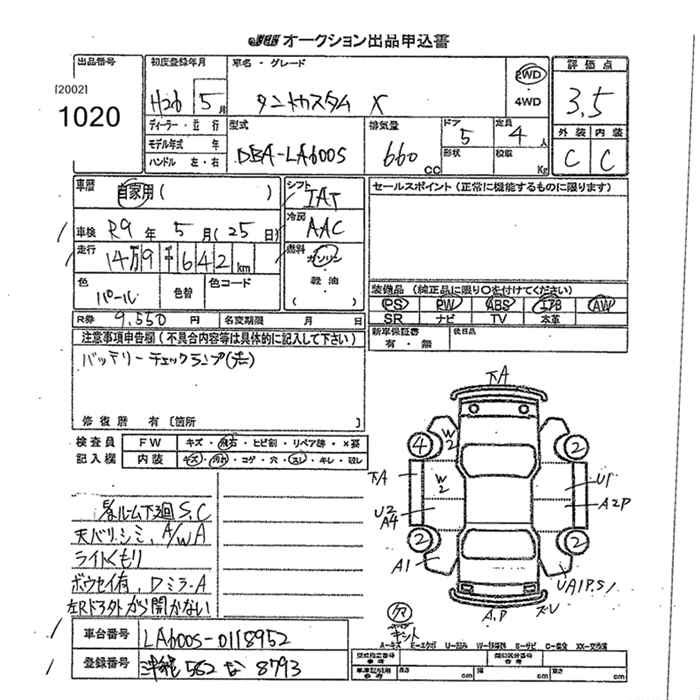 オークション出品申込書
出品番号
[2002]
1020
初度登録年月
H26 5月
車名・グレード
タントカスタム X
2WD
・4WD
評価点
3.5
外装 内装
C C
ディーラー・並行
モデル年式 年
ハンドル 左・右
型式
DBA-LA600S
排気量
660 CC
ドア
5
形状
定員
4人
積載
Kg
車歴
自家用( )
車検 R9年 5月(25日)
走行
14万9千642km
色
パール
色替
色コード
シフト
IAT
冷房
AAC
燃料
ガソリン
軽油
( )
セールスポイント(正常に機能するものに限ります)
装備品(純正品に限り○を付けてください)
PS PW ABS エアB AW
SR ナビ TV 本革
新車保証書
有・無
後日品
R券 9,550円
名変期限 月 日
注意事項申告欄(不具合内容等は具体的に記入して下さい)
バッテリーチェックランプ(点)
修復歴 有[箇所 ]
検査員
記入欄
FW キズ・飛石・ヒビ割・リペア跡・×要
内装 キズ・汚れ・コゲ・穴・スレ・キレ・破レ
ルーム下廻S,C
天バリ,シミ, A/W A
ライトくもり
ボウセイ有, DミラーA
左Rドア外から開かない
車台番号 LA600S-0118952
登録番号 沖縄 582 な 8793
下A
4
W2
2
下A
W2
U1
A2P
U2
A4
2
2
A1
UA1P,S
A,P
ズレ
欠
キット
A-キズ E-エクボ U-凹み W-修理跡 S-サビ C-腐食 XX-交換済
型式指定番号
類別区分番号
長さ cm
幅 cm
高さ cm